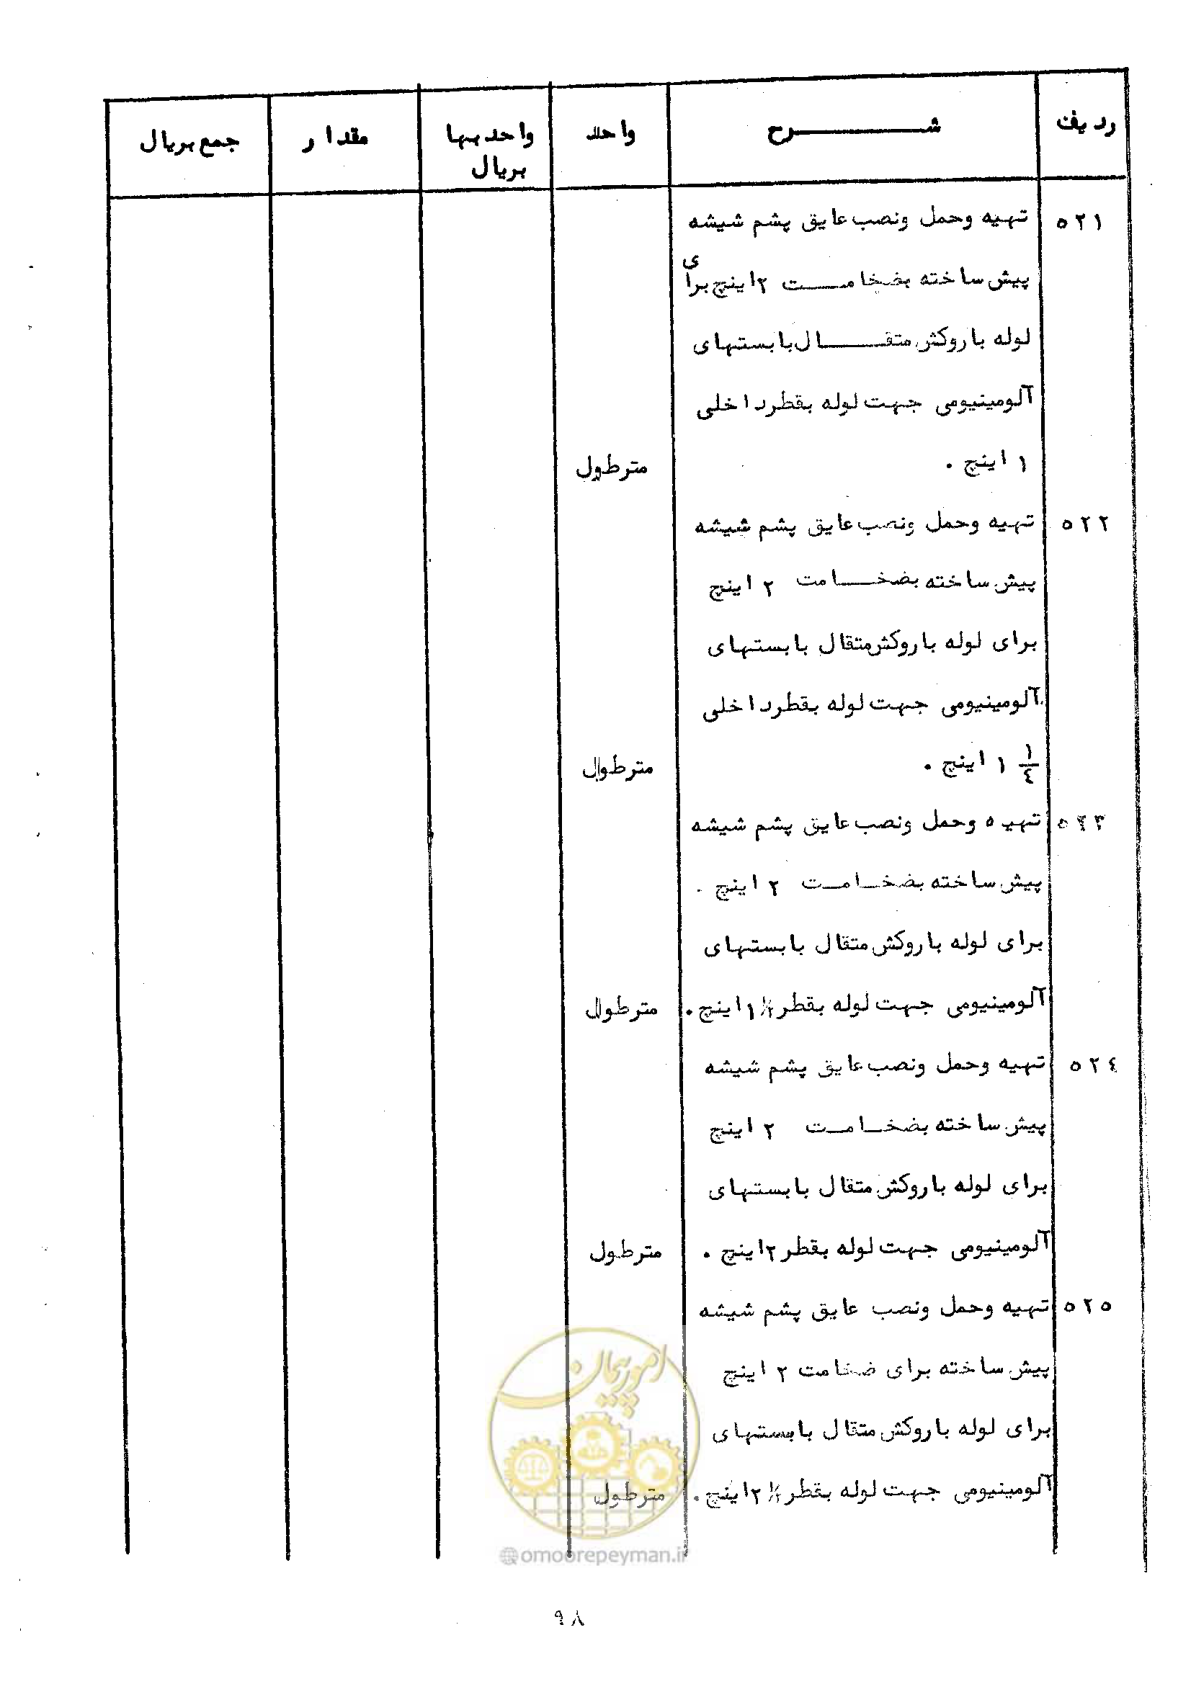 ردیف شرح واحد واحد بها بریال مقدار جمع بریال
۵۲۱ تهیه وحمل ونصب عایق پشم شیشه
پیش ساخته بضخامت ۲ اینچ برای
لوله با روکش متقال با بستهای
آلومینیومی جهت لوله بقطر داخلی
۱ اینچ . مترطول
۵۲۲ تهیه وحمل ونصب عایق پشم شیشه
پیش ساخته بضخامت ۲ اینچ
برای لوله با روکش متقال با بستهای
آلومینیومی جهت لوله بقطر داخلی
۱ ۱/٤ اینچ . مترطول
۵۲۳ تهیه وحمل ونصب عایق پشم شیشه
پیش ساخته بضخامت ۲ اینچ .
برای لوله با روکش متقال با بستهای
آلومینیومی جهت لوله بقطر ۱ ۱/۲ اینچ . مترطول
۵۲٤ تهیه وحمل ونصب عایق پشم شیشه
پیش ساخته بضخامت ۲ اینچ
برای لوله با روکش متقال با بستهای
آلومینیومی جهت لوله بقطر ۲ اینچ . مترطول
۵۲۵ تهیه وحمل ونصب عایق پشم شیشه
پیش ساخته برای ضخامت ۲ اینچ
برای لوله با روکش متقال با بستهای
آلومینیومی جهت لوله بقطر ۲ ۱/۲ اینچ . مترطول
امور پیمان
@omoorepeyman.ir
۹۸